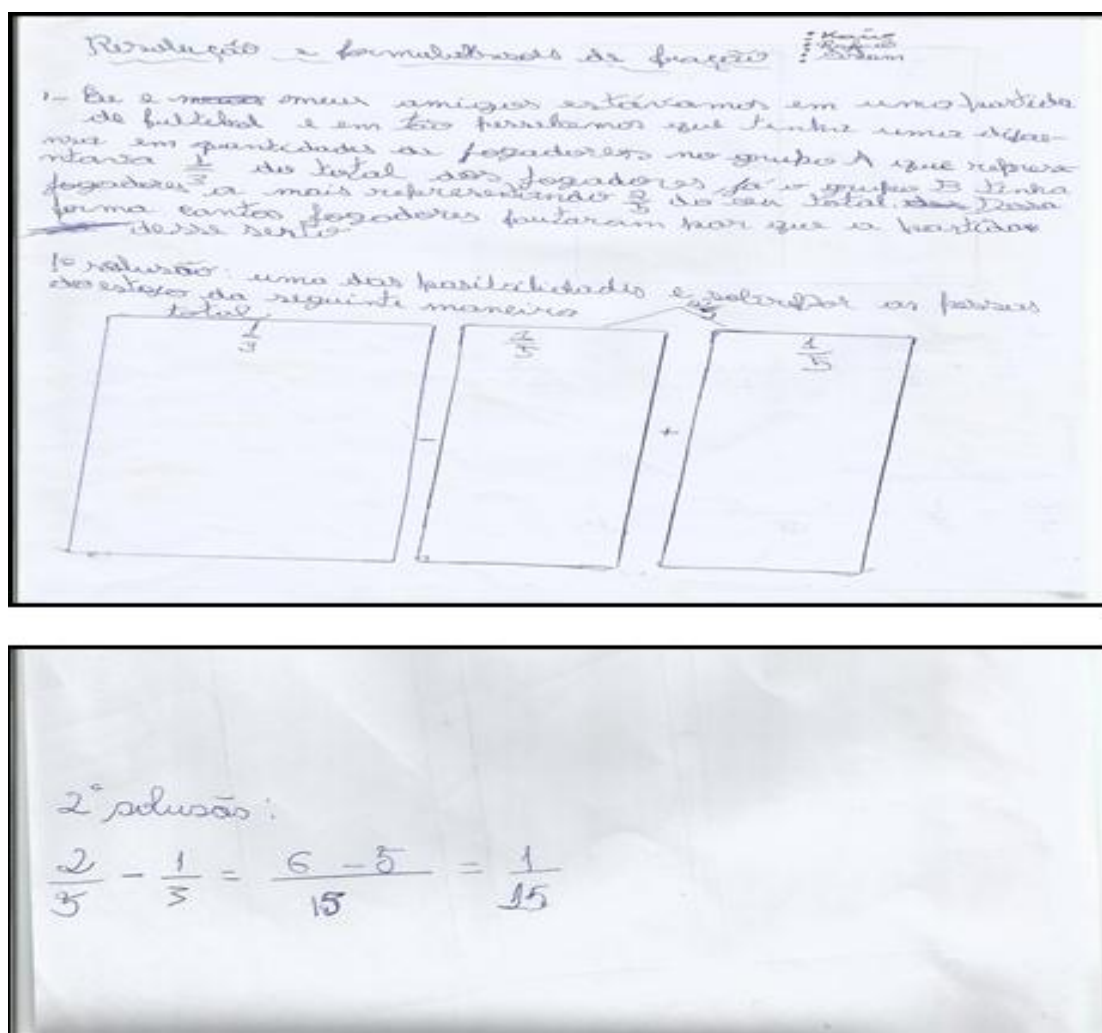 Resolução e formulações de fração
1- Eu e meus amigos estávamos em umo partida
de futtebol e em tão persebemos que tinha uma difere-
nsa em quantidades de jogadores no grupo A que represe
ntava 1/3 do total dos jogadores já o grupo B tinha
jogadores a mais representando 2/5 do seu total. Dessa
forma cantos jogadores fautaram par que a partida
desse serto
1º solusão: uma das posibilidades e as
do estojo da seguinte maneira
total
1/3 1/5 1/5
- +
2º solusão:
2/5 - 1/3 = 6 - 5/15 = 1/15